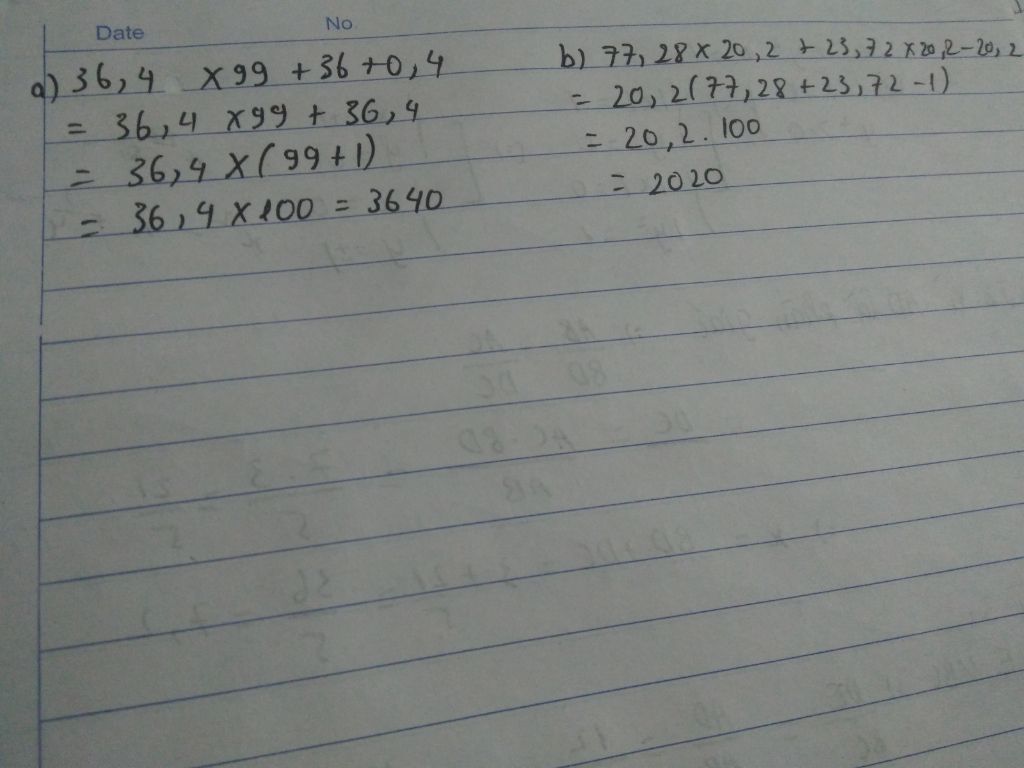 Date No
a) 36,4 x 99 + 36 + 0,4
= 36,4 x 99 + 36,4
= 36,4 x (99 + 1)
= 36,4 x 100 = 3640
b) 77,28 x 20,2 + 23,72 x 20,2 - 20,2
= 20,2 (77,28 + 23,72 - 1)
= 20,2 . 100
= 2020